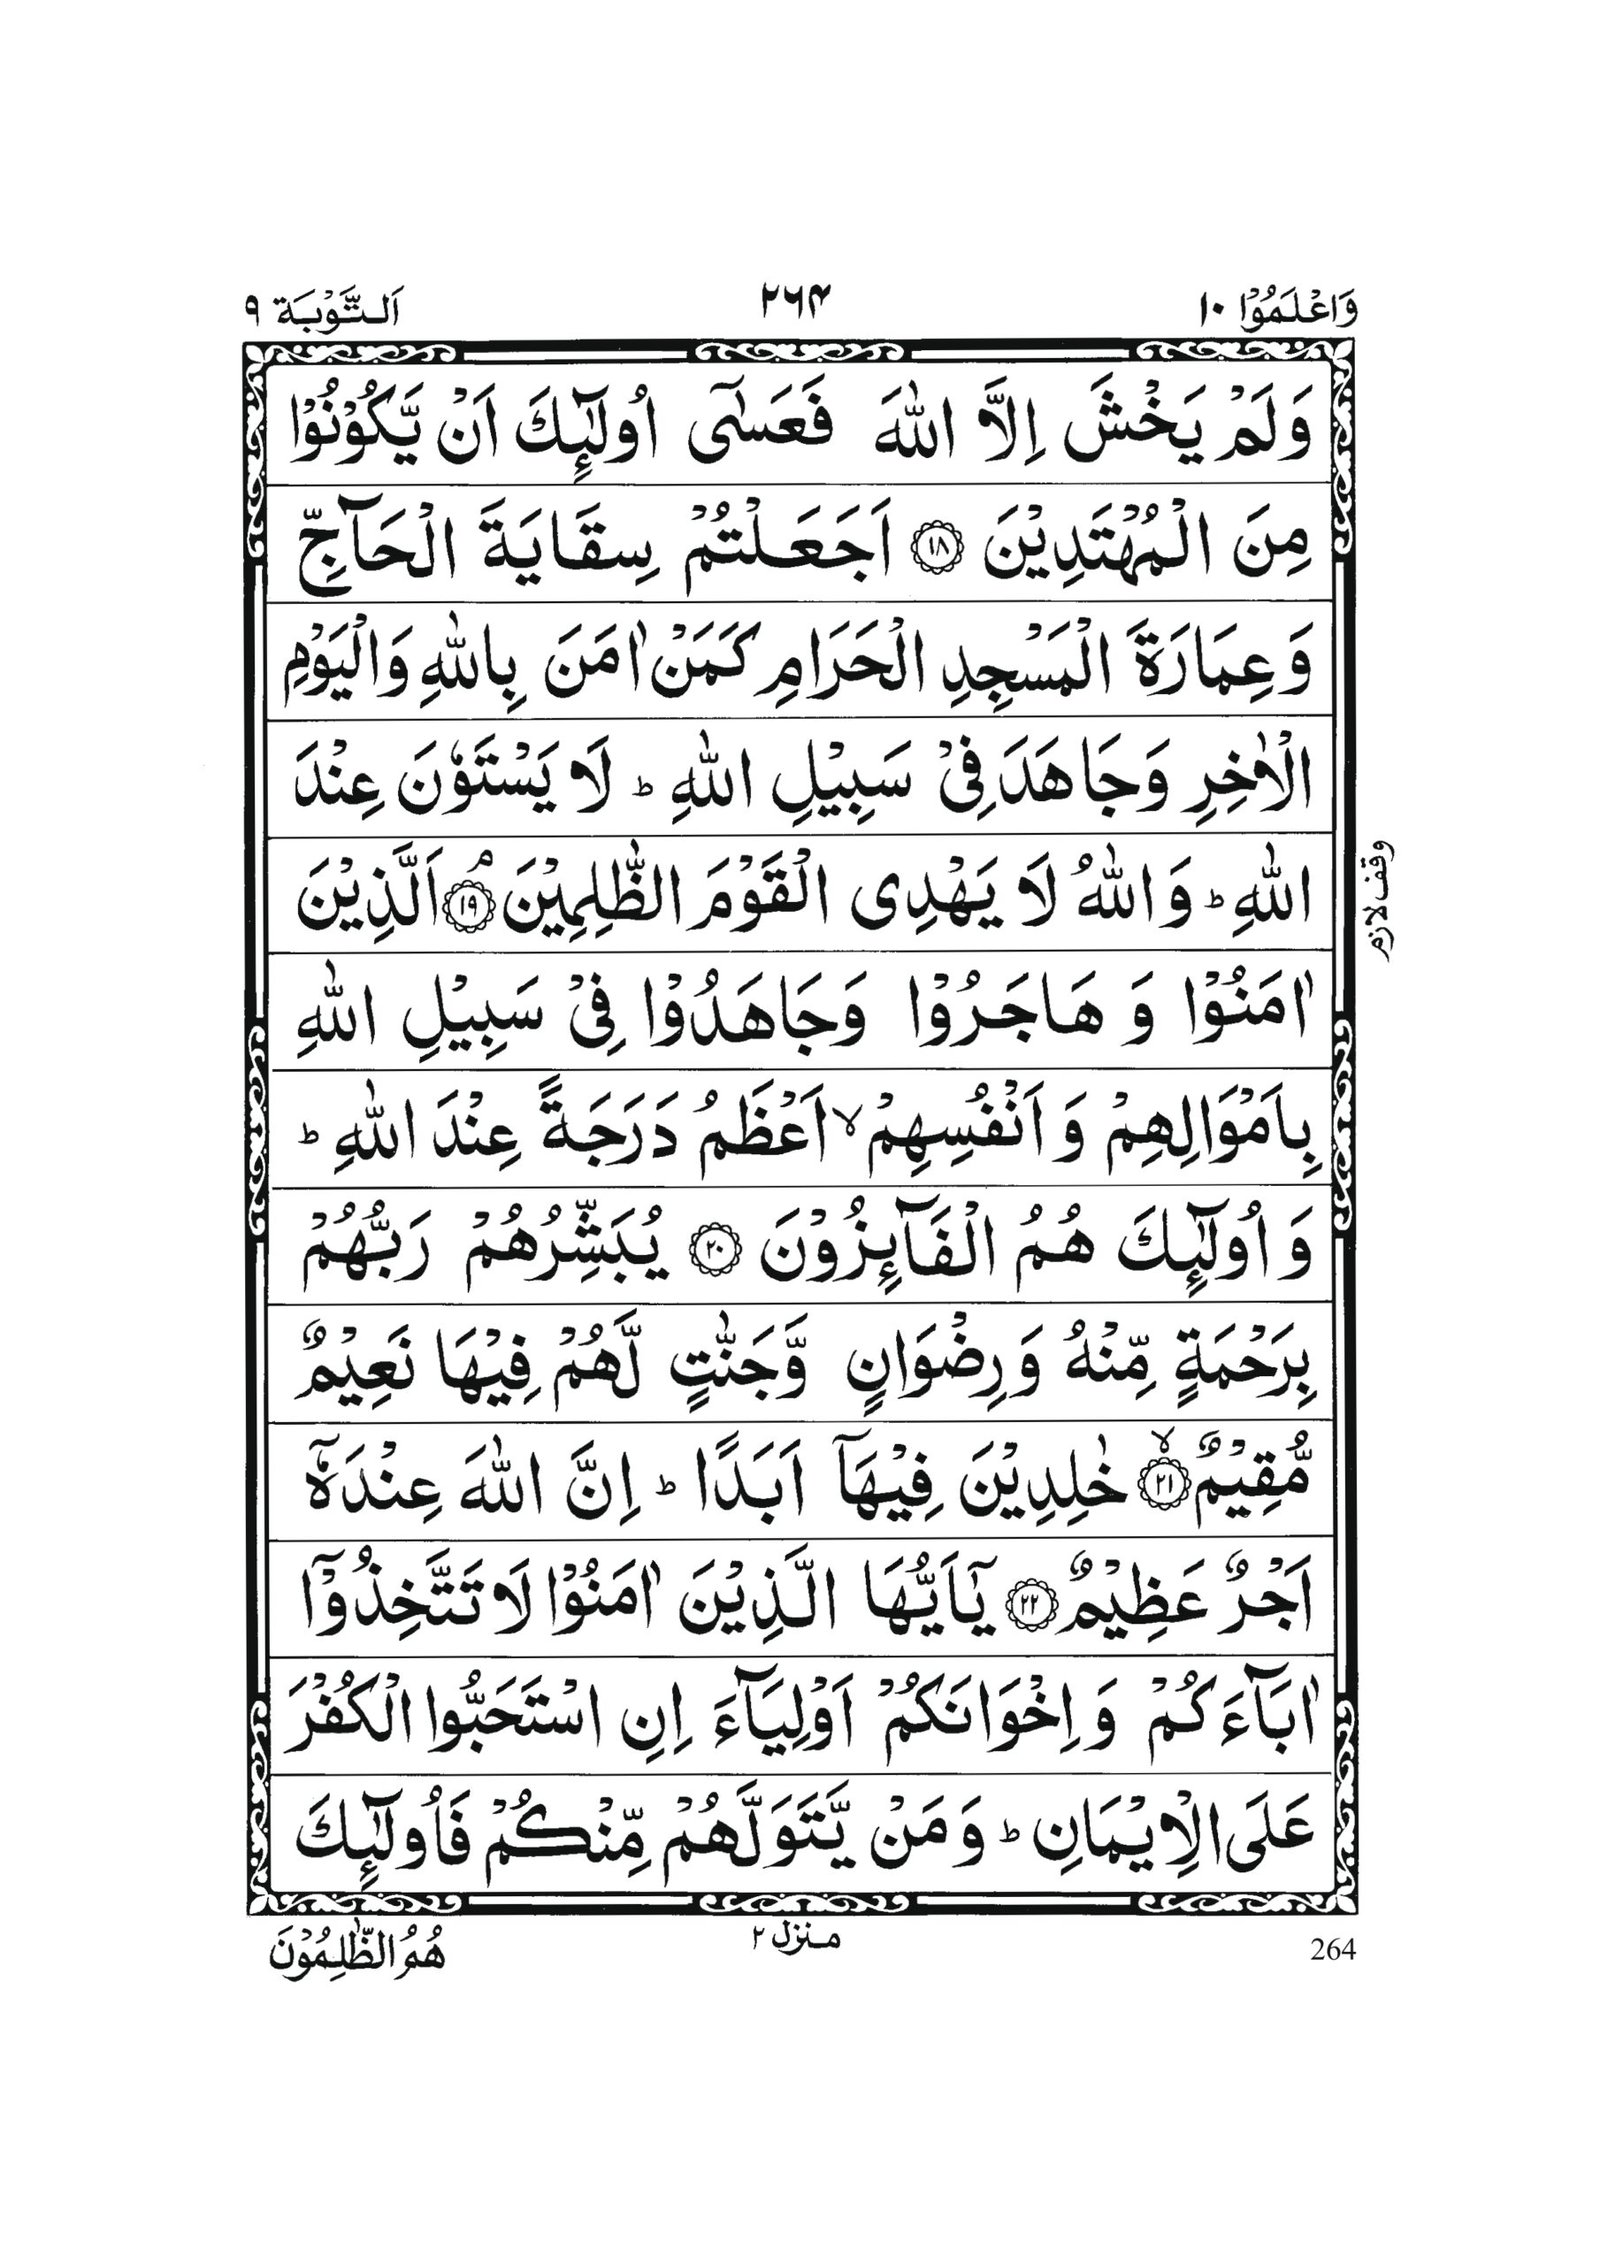 وَاعْلَمُوْا ١٠
٢٦٤
اَلتَّوْبَة ٩
وَلَمْ يَخْشَ اِلَّا اللّٰهَ فَعَسٰٓى اُولٰٓئِكَ اَنْ يَّكُوْنُوْا
مِنَ الْمُهْتَدِيْنَ ١٨ اَجَعَلْتُمْ سِقَايَةَ الْحَآجِّ
وَعِمَارَةَ الْمَسْجِدِ الْحَرَامِ كَمَنْ اٰمَنَ بِاللّٰهِ وَالْيَوْمِ
الْاٰخِرِ وَجَاهَدَ فِىْ سَبِيْلِ اللّٰهِ ؕ لَا يَسْتَوٗنَ عِنْدَ
اللّٰهِ ؕ وَاللّٰهُ لَا يَهْدِى الْقَوْمَ الظّٰلِمِيْنَ ۘ ١٩ اَلَّذِيْنَ
وقف لازم
اٰمَنُوْا وَ هَاجَرُوْا وَجَاهَدُوْا فِىْ سَبِيْلِ اللّٰهِ
بِاَمْوَالِهِمْ وَ اَنْفُسِهِمْ ۙ اَعْظَمُ دَرَجَةً عِنْدَ اللّٰهِ ؕ
وَ اُولٰٓئِكَ هُمُ الْفَآئِزُوْنَ ٢٠ يُبَشِّرُهُمْ رَبُّهُمْ
بِرَحْمَةٍ مِّنْهُ وَ رِضْوَانٍ وَّجَنّٰتٍ لَّهُمْ فِيْهَا نَعِيْمٌ
مُّقِيْمٌ ۙ ٢١ خٰلِدِيْنَ فِيْهَآ اَبَدًا ؕ اِنَّ اللّٰهَ عِنْدَهٗٓ
اَجْرٌ عَظِيْمٌ ٢٢ يٰٓاَيُّهَا الَّذِيْنَ اٰمَنُوْا لَا تَتَّخِذُوْٓا
اٰبَآءَكُمْ وَ اِخْوَانَكُمْ اَوْلِيَآءَ اِنِ اسْتَحَبُّوا الْكُفْرَ
عَلَى الْاِيْمَانِ ؕ وَ مَنْ يَّتَوَلَّهُمْ مِّنْكُمْ فَاُولٰٓئِكَ
هُمُ الظّٰلِمُوْنَ
منزل ٢
264